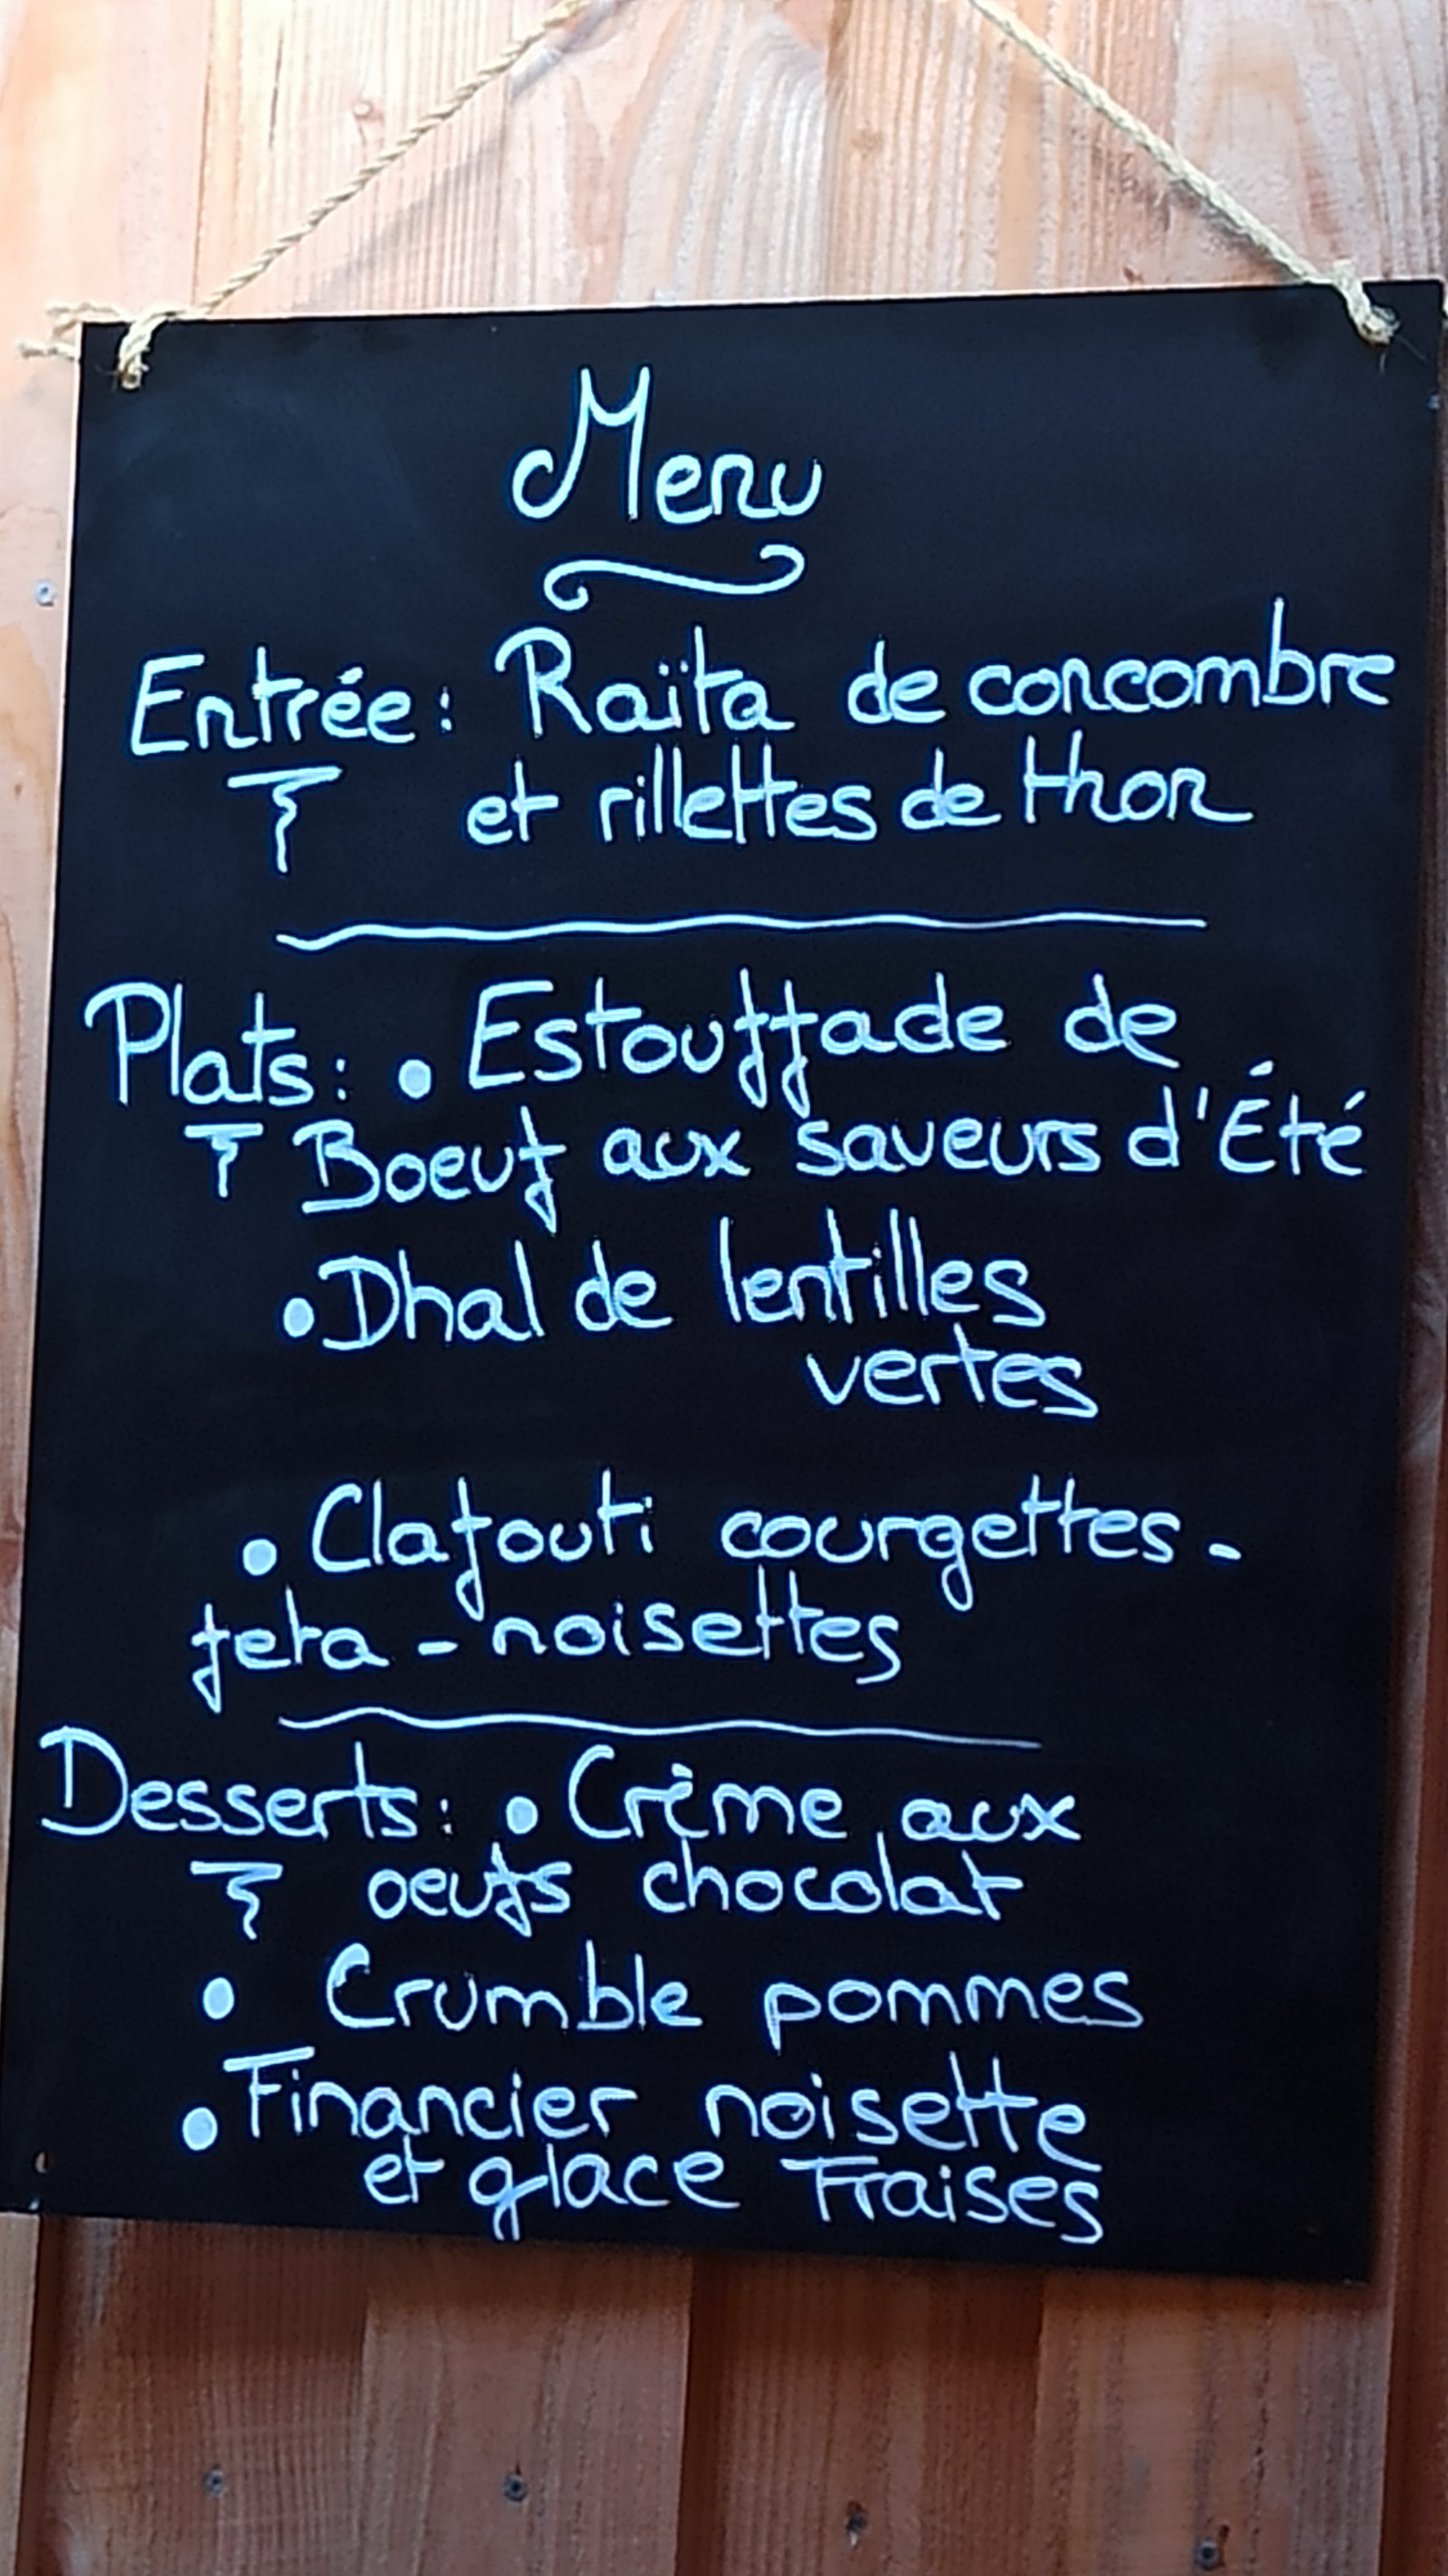 Menu
Entrée: Raïta de concombre
et rillettes de thon
Plats: • Estouffade de
Boeuf aux saveurs d'Été
• Dhal de lentilles
vertes
• Clafouti courgettes -
feta - noisettes
Desserts: • Crème aux
oeufs chocolat
• Crumble pommes
• Financier noisette
et glace Fraises